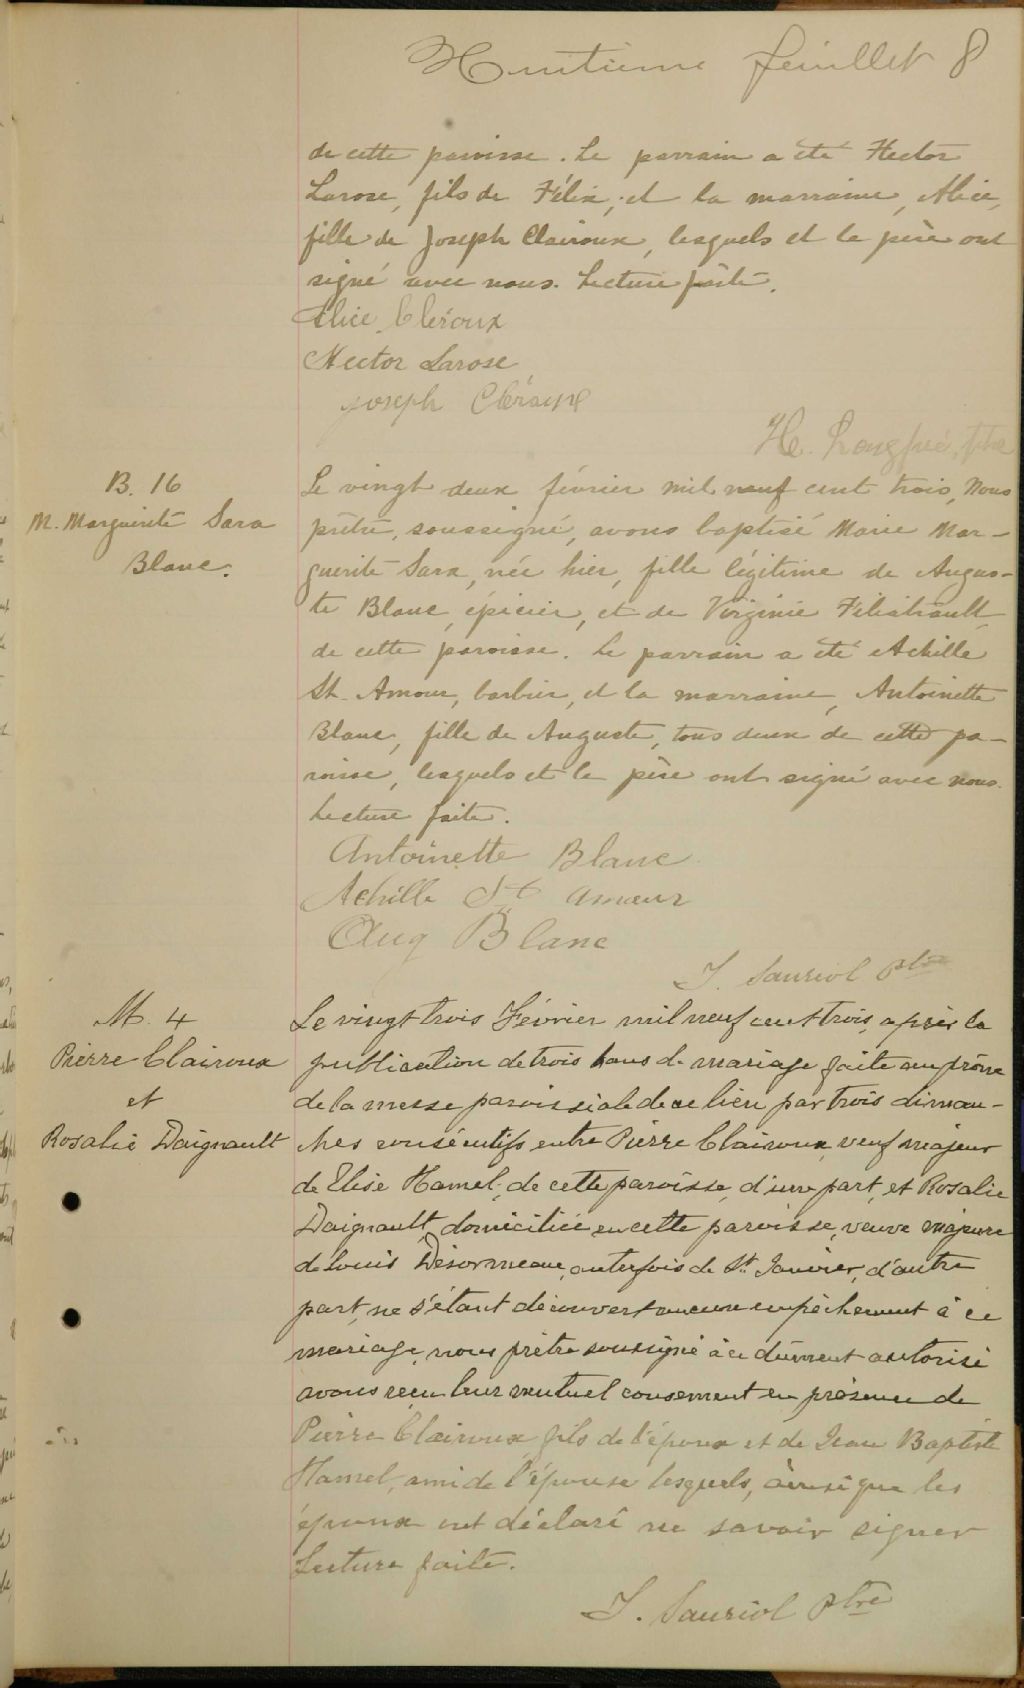 Huitième feuillet 8
de cette paroisse. Le parrain a été Hector
Larose, fils de Félix, et la marraine, Alice,
fille de Joseph Clairoux, lesquels et le père ont
signé avec nous. Lecture faite.
Alice Cléroux
Hector Larose
Joseph Cléroux
H. Longpré, ptre
B. 16
M. Marguerite Sara
Blanc.
Le vingt deux février mil neuf cent trois, Nous
prêtre, soussigné, avons baptisé Marie Mar-
guerite Sara, née hier, fille légitime de Augus-
te Blanc, épicier, et de Virginie Filiatrault,
de cette paroisse. Le parrain a été Achille
St-Amour, barbier, et la marraine, Antoinette
Blanc, fille de Auguste, tous deux de cette pa-
roisse, lesquels et le père ont signé avec nous.
Lecture faite.
Antoinette Blanc
Achille St Amour
Aug Blanc
J. Sauriol Ptre
M. 4
Pierre Clairoux
et
Rosalie Daignault
Le vingt trois Février mil neuf cent trois, après la
publication de trois bans de mariage faite au prône
de la messe paroissiale de ce lieu par trois diman-
ches consécutifs entre Pierre Clairoux, veuf majeur
de Elise Hamel, de cette paroisse, d'une part, et Rosalie
Daignault, domiciliée en cette paroisse, veuve majeure
de Louis Désormeau, autrefois de St. Janvier, d'autre
part, ne s'étant découvert aucun empêchement à ce
mariage, nous prêtre soussigné à ce dûment autorisé
avons reçu leur mutuel consement en présence de
Pierre Clairoux, fils de l'époux et de Jean Baptiste
Hamel, ami de l'épouse lesquels, ainsi que les
époux ont déclaré ne savoir signer
Lecture faite.
J. Sauriol Ptre